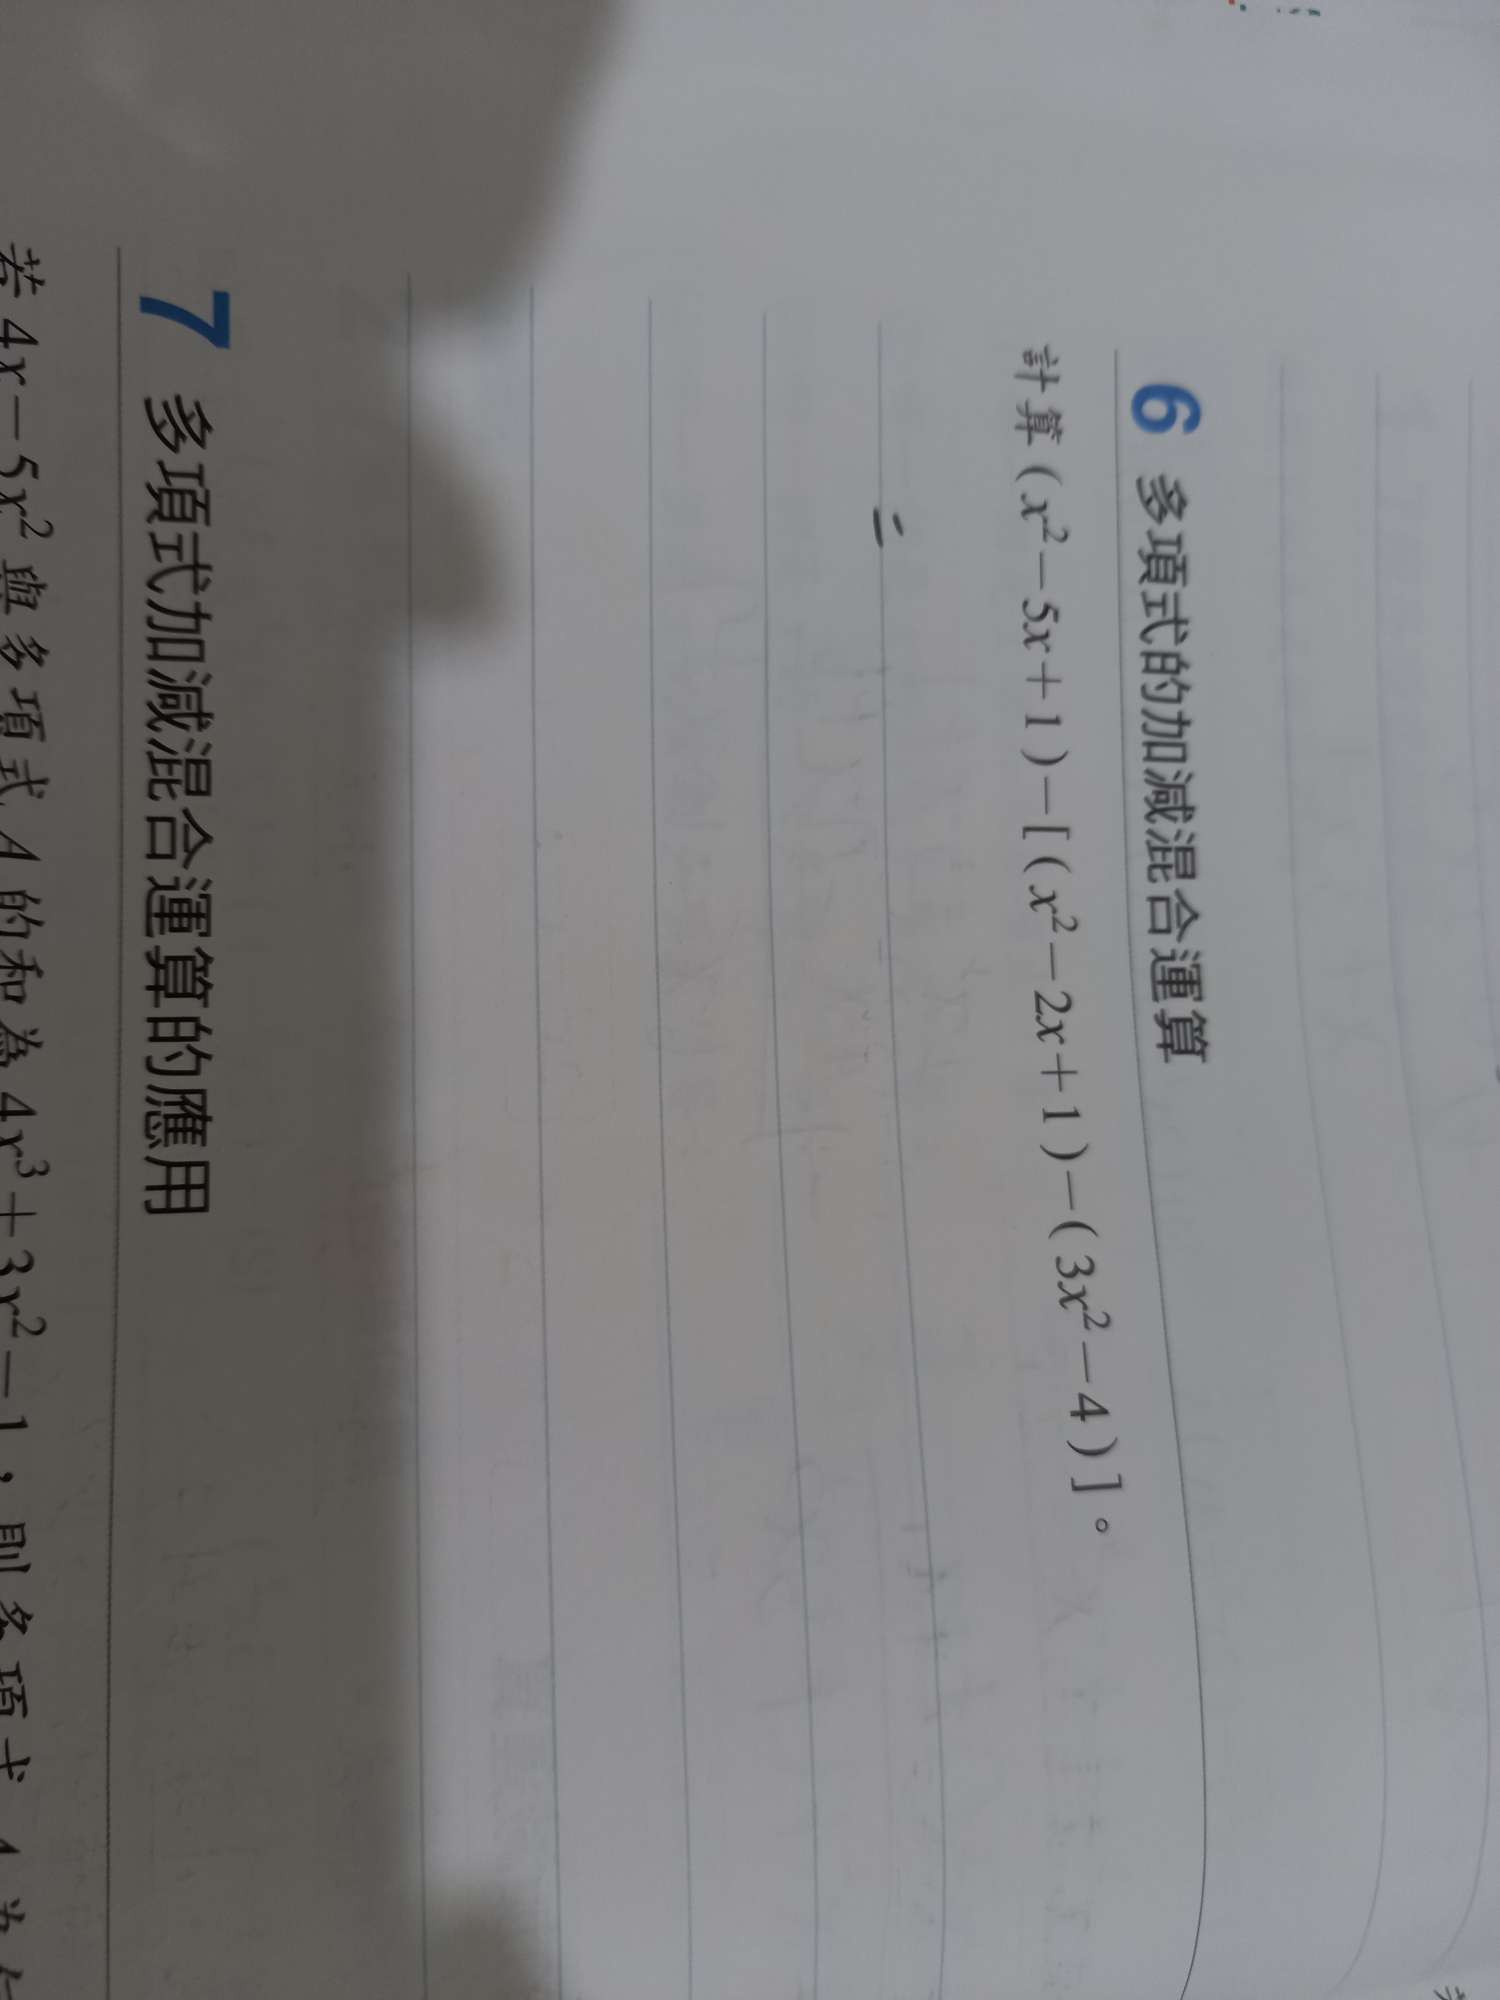 6 多項式的加減混合運算
計算(x²−5x+1)−[(x²−2x+1)−(3x²−4)]。
=
7 多項式加減混合運算的應用
若 4x−5x² 與多項式 A 的和為 4x³+3x²−1，則多項式 A 為